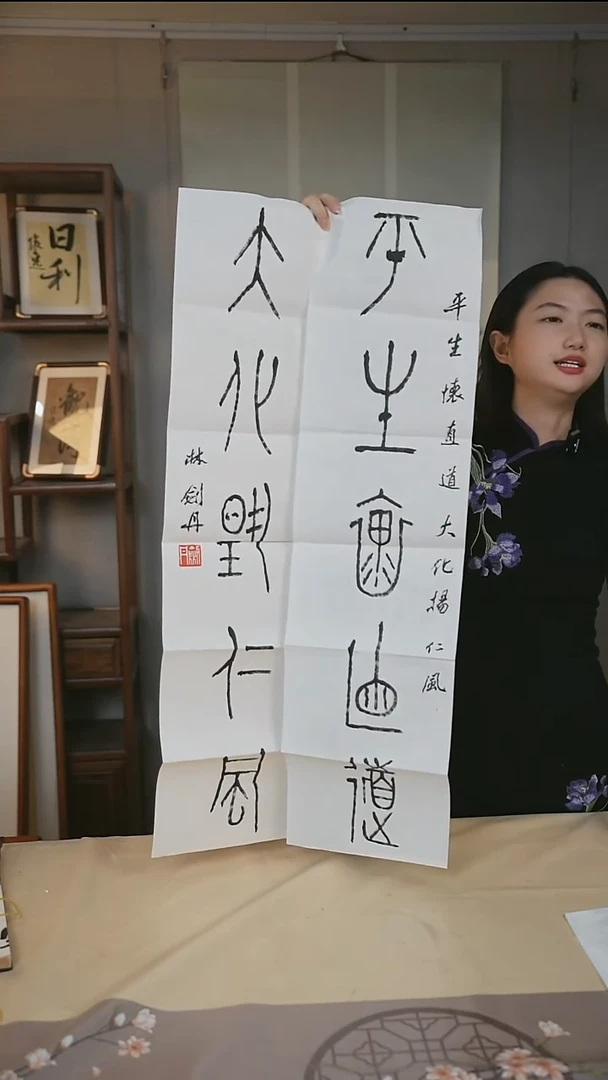 平生懷直道大化揚仁風
平生懷直道
大化揚仁風
林劍丹
日利